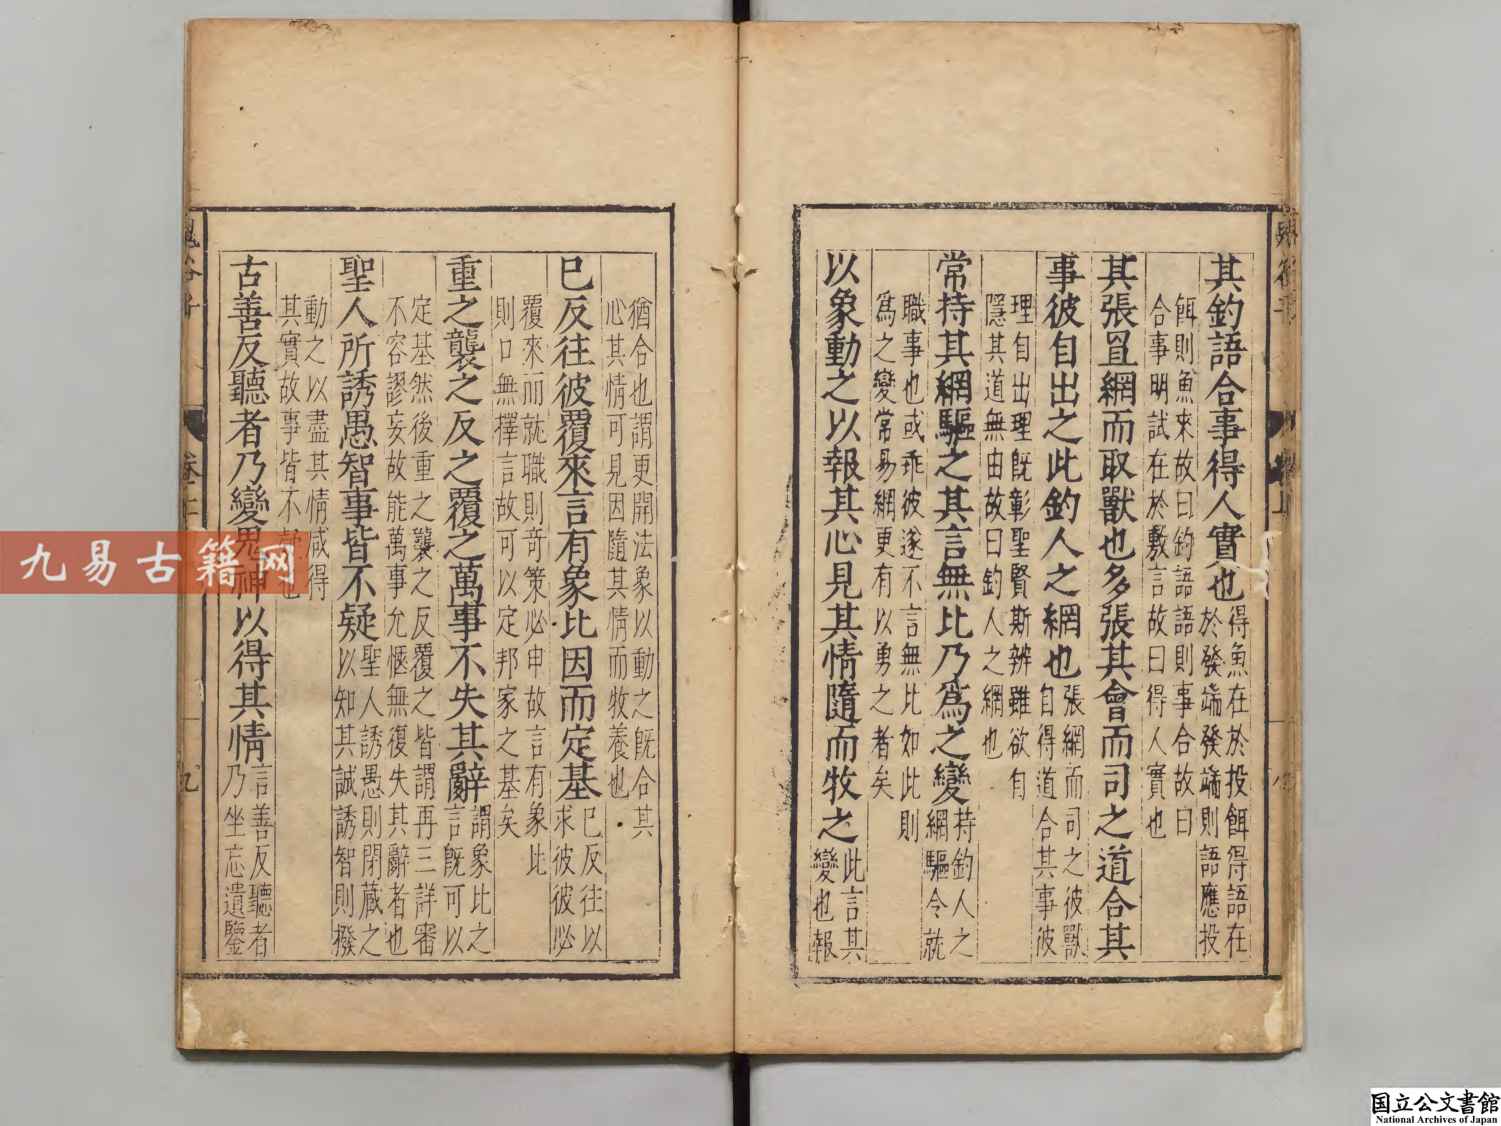 其釣語合事得人實也得魚在於投餌得語在
於發端發端則語應投
餌則魚來故曰釣語語則事合故曰
合事明試在於敷言故曰得人實也
其張罝網而取獸也多張其會而司之道合其
事彼自出之此釣人之網也張網而司之彼獸
自得道合其事彼
理自出理既彰聖賢斯辨雖欲自
隱其道無由故曰釣人之網也
常持其網驅之其言無比乃爲之變持釣人之
網驅令就
職事也或乖彼遂不言無比如此則
爲之變常易網更有以勇之者矣
以象動之以報其心見其情隨而牧之此言其
變也報
猶合也謂更開法象以動之既合其
心其情可見因隨其情而牧養也
已反往彼覆來言有象比因而定基已反往以
求彼彼必
覆來而就職則奇策必申故言有象比
則口無擇言故可以定邦家之基矣
重之襲之反之覆之萬事不失其辭謂象比之
言既可以
定基然後重之襲之反覆之皆謂再三詳審
不容謬妄故能萬事允愜無復失其辭者也
聖人所誘愚智事皆不疑聖人誘愚則閉藏之
以知其誠誘智則撥
動之以盡其情咸得
其實故事皆不疑也
古善反聽者乃變鬼神以得其情言善反聽者
乃坐忘遺鑒
鬼谷子 卷上 九
九易古籍网
国立公文書館
National Archives of Japan